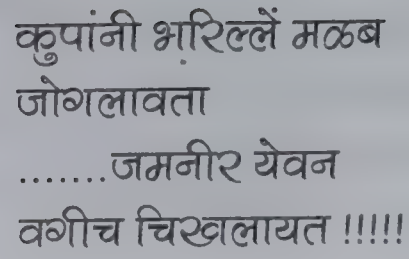 कुपांनी भरिल्लें मळब
जोगलावता
.......जमनीर येवन
वगीच चिखलायत !!!!!